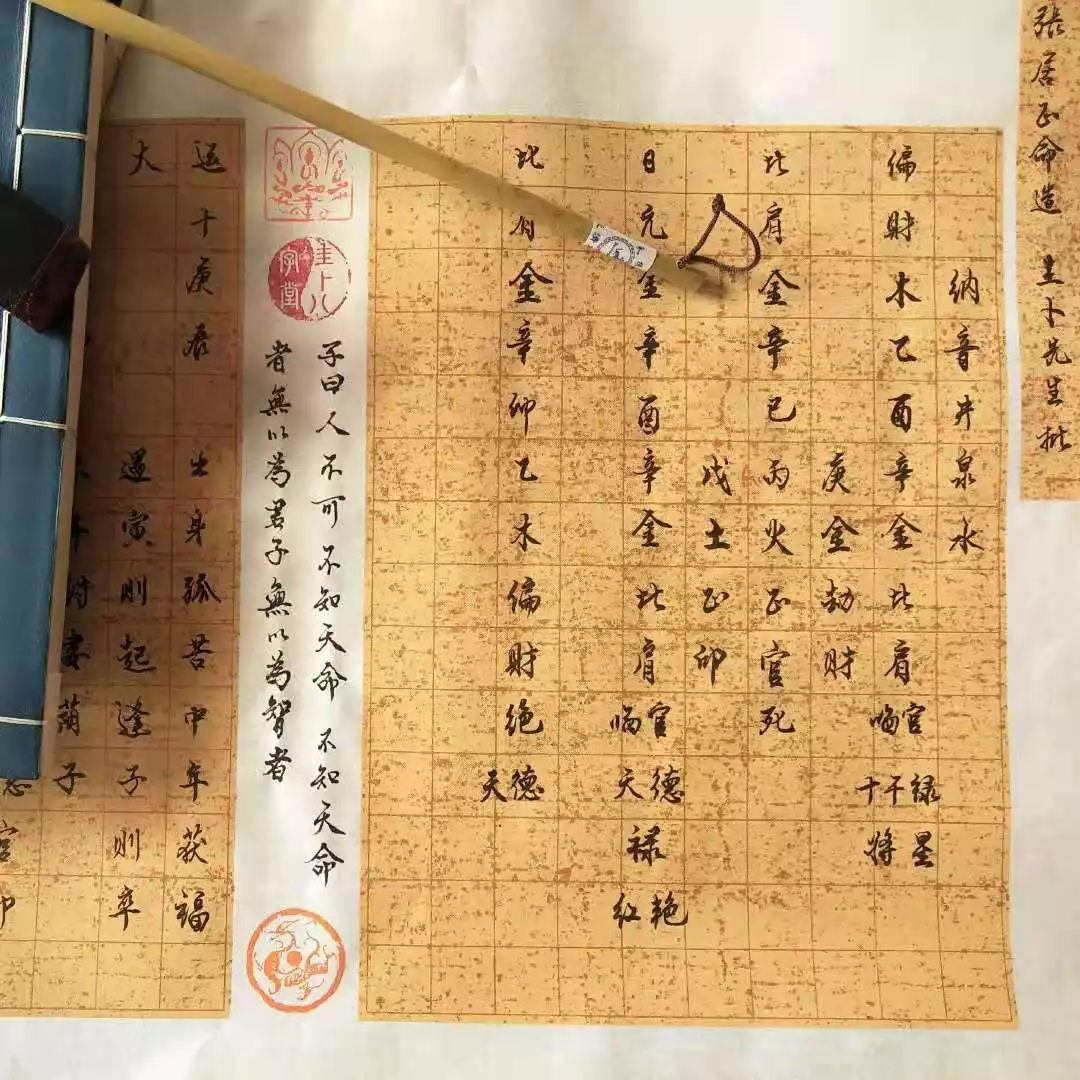 張居正命造 圭卜先生批
納音井泉水
偏財木乙酉辛金比肩
臨官
十干禄
将星
庚金劫財
比肩金辛巳丙火正官死
戊土正印
日元金辛酉辛金比肩
臨官
天德
禄
红艳
比肩金辛卯乙木偏財绝
天德
子曰人不可不知天命 不知天命
者無以為君子無以為智者
圭卜八字堂
运十庚辰 出身孤苦中年获福
大 遇寅则起逢子则卒